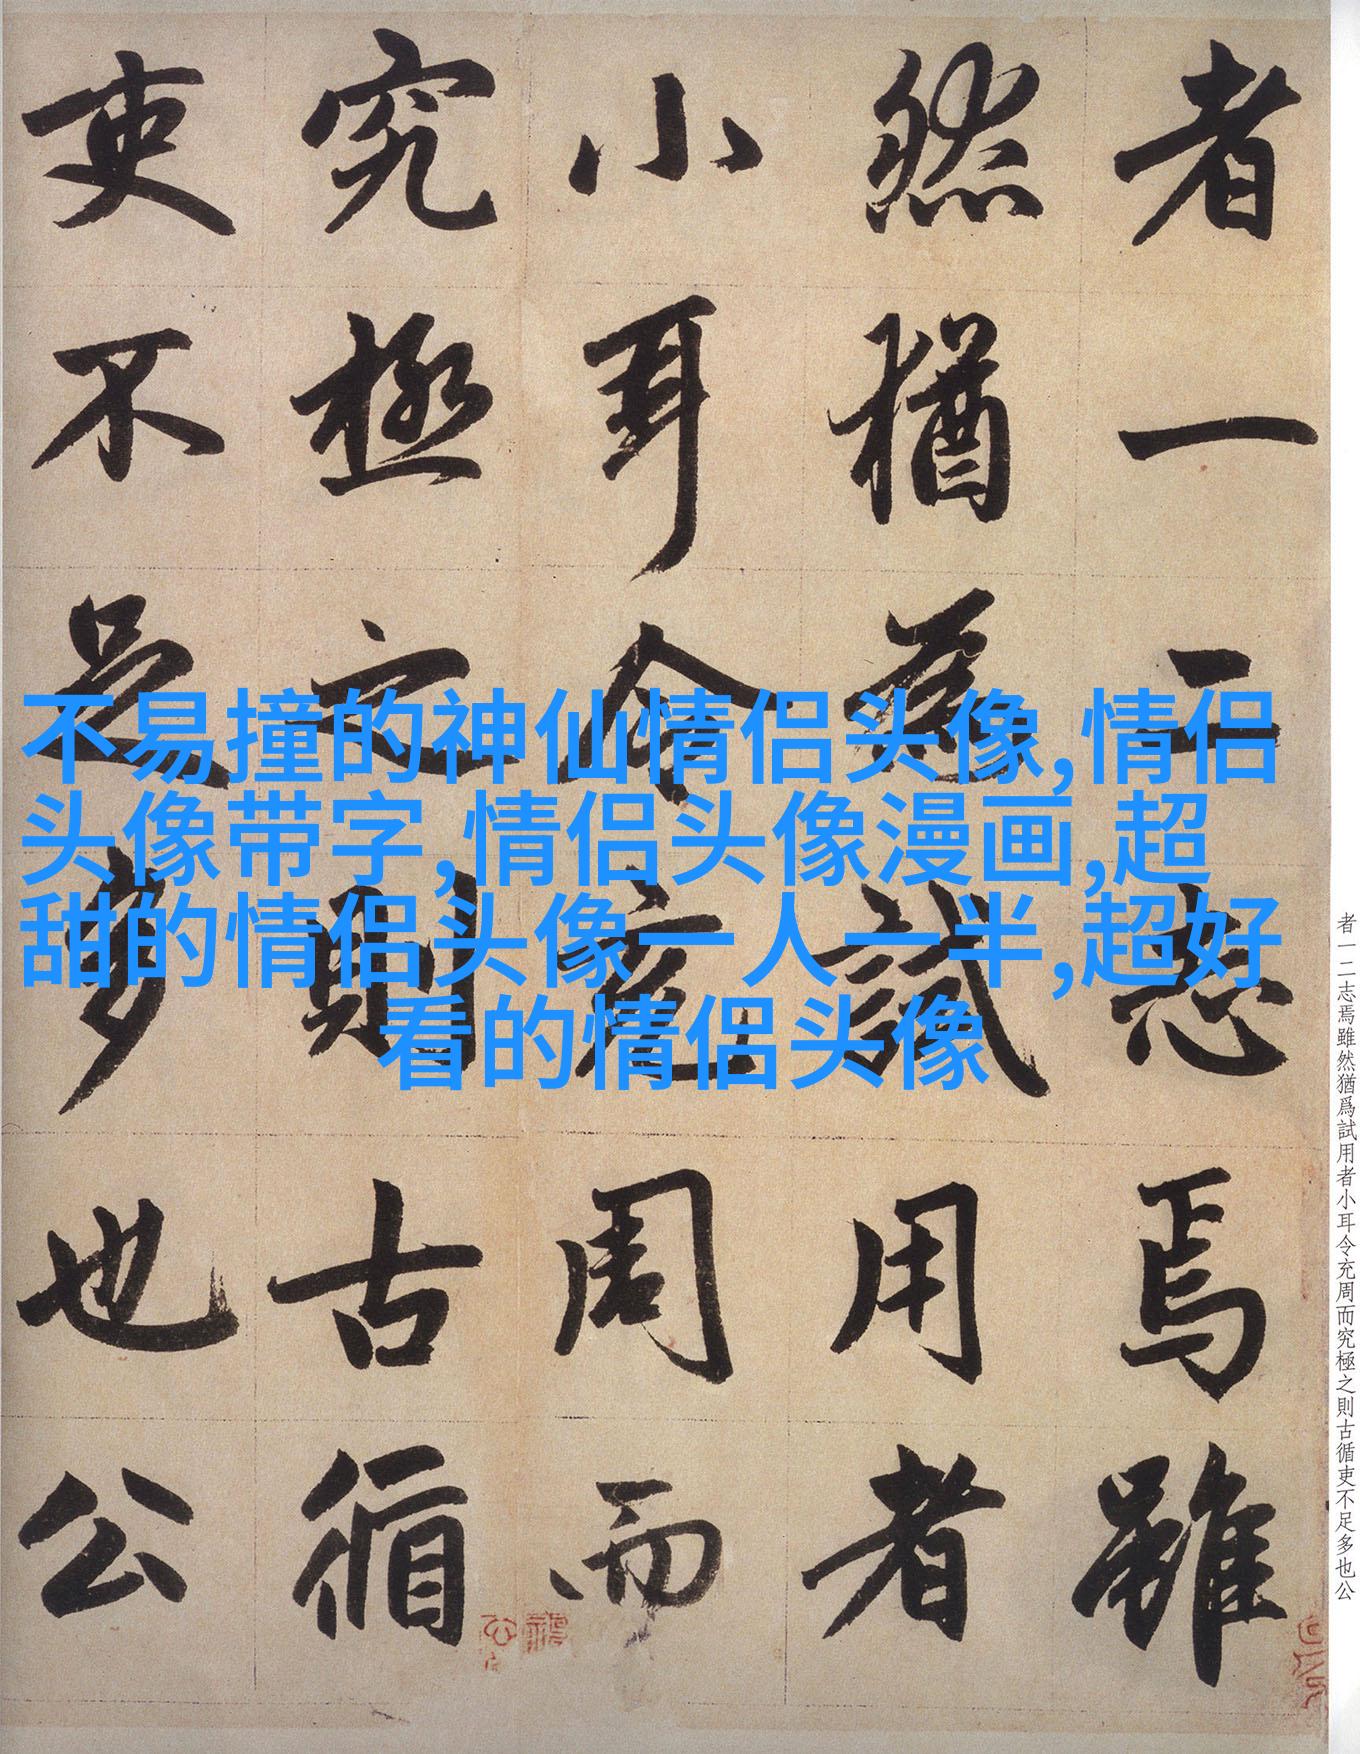 者一二志焉雖
然猶爲試用者
小耳令充周而
究極之則古循
吏不足多也公
不易撞的神仙情侣头像,情侣
头像带字,情侣头像漫画,超
甜的情侣头像一人一半,超好
看的情侣头像
者一二志焉雖然猶爲試用者小耳令充周而究極之則古循吏不足多也公